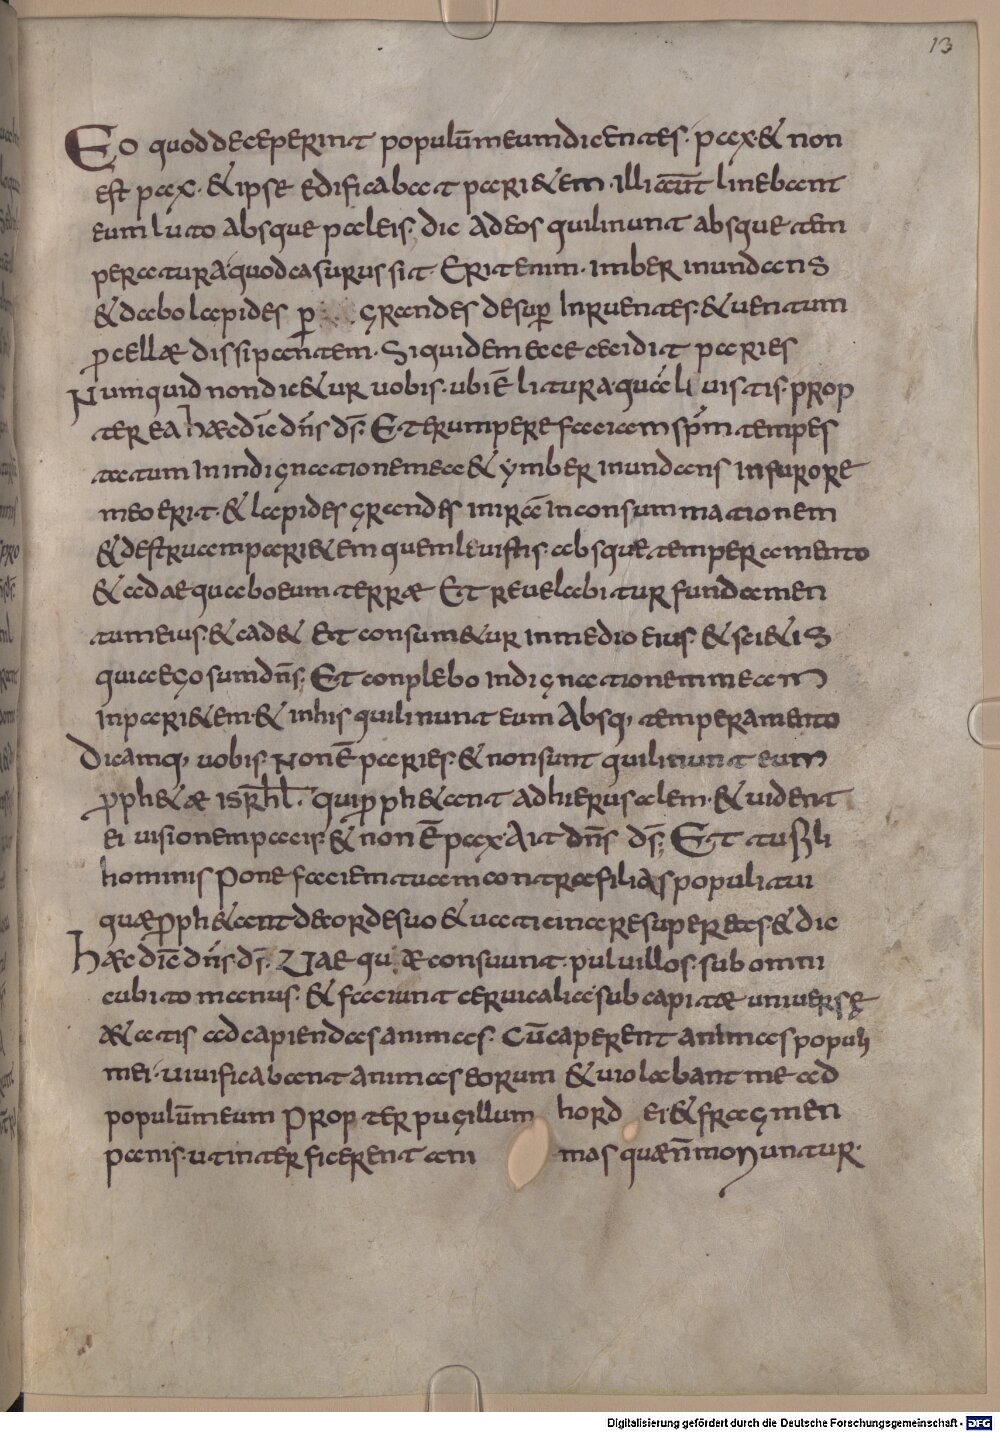 13
Eo quod deceperint populū meum dicentes· pax· & non
est pax· & ipse edificabat pari&em· illi aūt linebant
eum luto absque paleis· dic ad eos qui linunt absque tem
peratura· quod casurus sit· Erit enim· imber inundans
& dabo lapides p grandes desup̄ Inruentes· & uentum
p̄cellæ dissipantem· Siquidem ecce cecidit paries
Numquid non dic&ur uobis· ubi ē litura· quā leuistis· prop
ter ea hæc dic̄ dn̄s ds̄· Et erumpere faciam spm̄ tempes
tatum In indignatione mea & ymber inundans in furore
meo erit· & lapides grandes in ira In consummationem
& destruam pari&em quem leuistis· absque temperamento
& adaequabo eum terræ Et reuelabitur fundamen
tum eius· & cad& Et consum&ur in medio eius· & sci&is
quia ego sum dn̄s; Et conplebo indignationem meam
In pari&em· & in his qui linunt eum Absq; temperamento
Dicamq; uobis· Non ē paries· & non sunt qui linunt eum
p̄ph&æ isrh̄l· qui p̄ph&ant ad hierusalem· & uident
ei uisionem pacis· & non ē pax· Ait dn̄s ds̄; Et tu fili
hominis Pone faciem tuam contra filias populi tui
quæ p̄ph&ant de corde suo & uaticinare super eas· & dic
Hæc dic̄ dn̄s ds̄· Uae quæ consuunt· puluillos· sub omni
cubito manus· & faciunt ceruicalia sub capitæ uniuersę
æ&atis ad capiendas animas· Cū caperent animas populi
mei· uiuificabant animas eorum & uiolabant me ad
populū meum Propter pugillum hordei & fragmen
panis· ut interficerent animas quæ n̄ moriuntur·
Digitalisierung gefördert durch die Deutsche Forschungsgemeinschaft - DFG